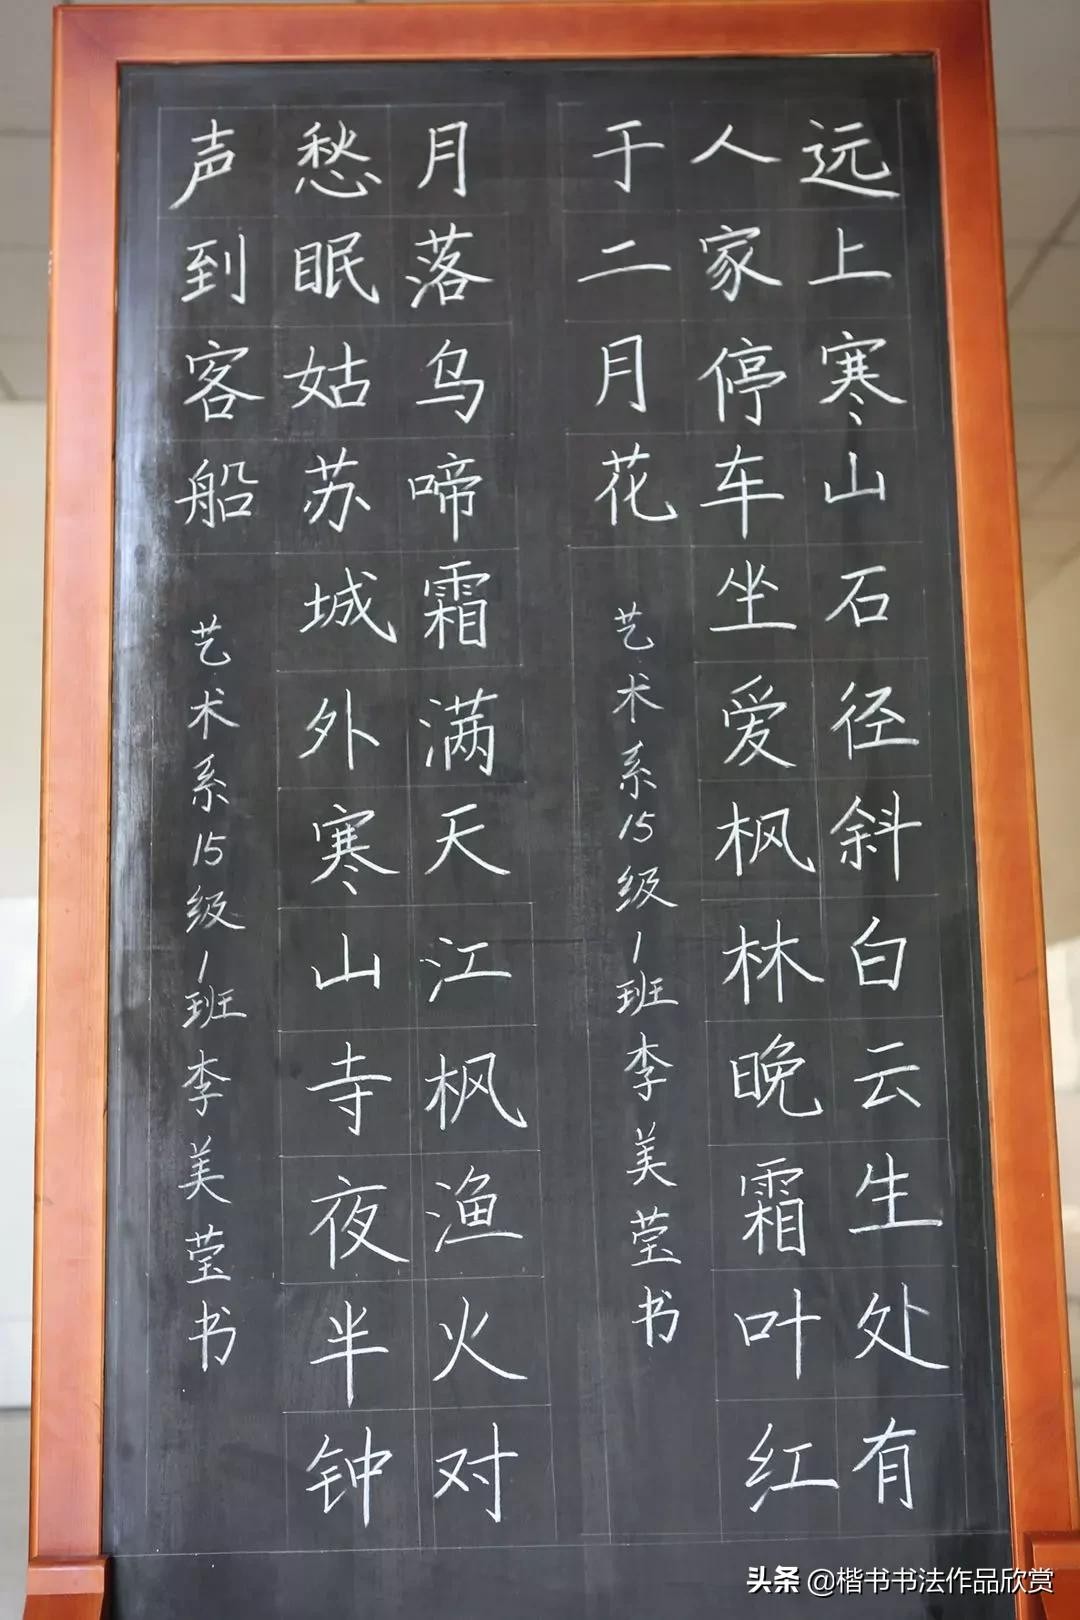 远上寒山石径斜白云生处有
人家停车坐爱枫林晚霜叶红
于二月花
艺术系15级1班李美莹书
月落乌啼霜满天江枫渔火对
愁眠姑苏城外寒山寺夜半钟
声到客船
艺术系15级1班李美莹书
头条 @楷书书法作品欣赏